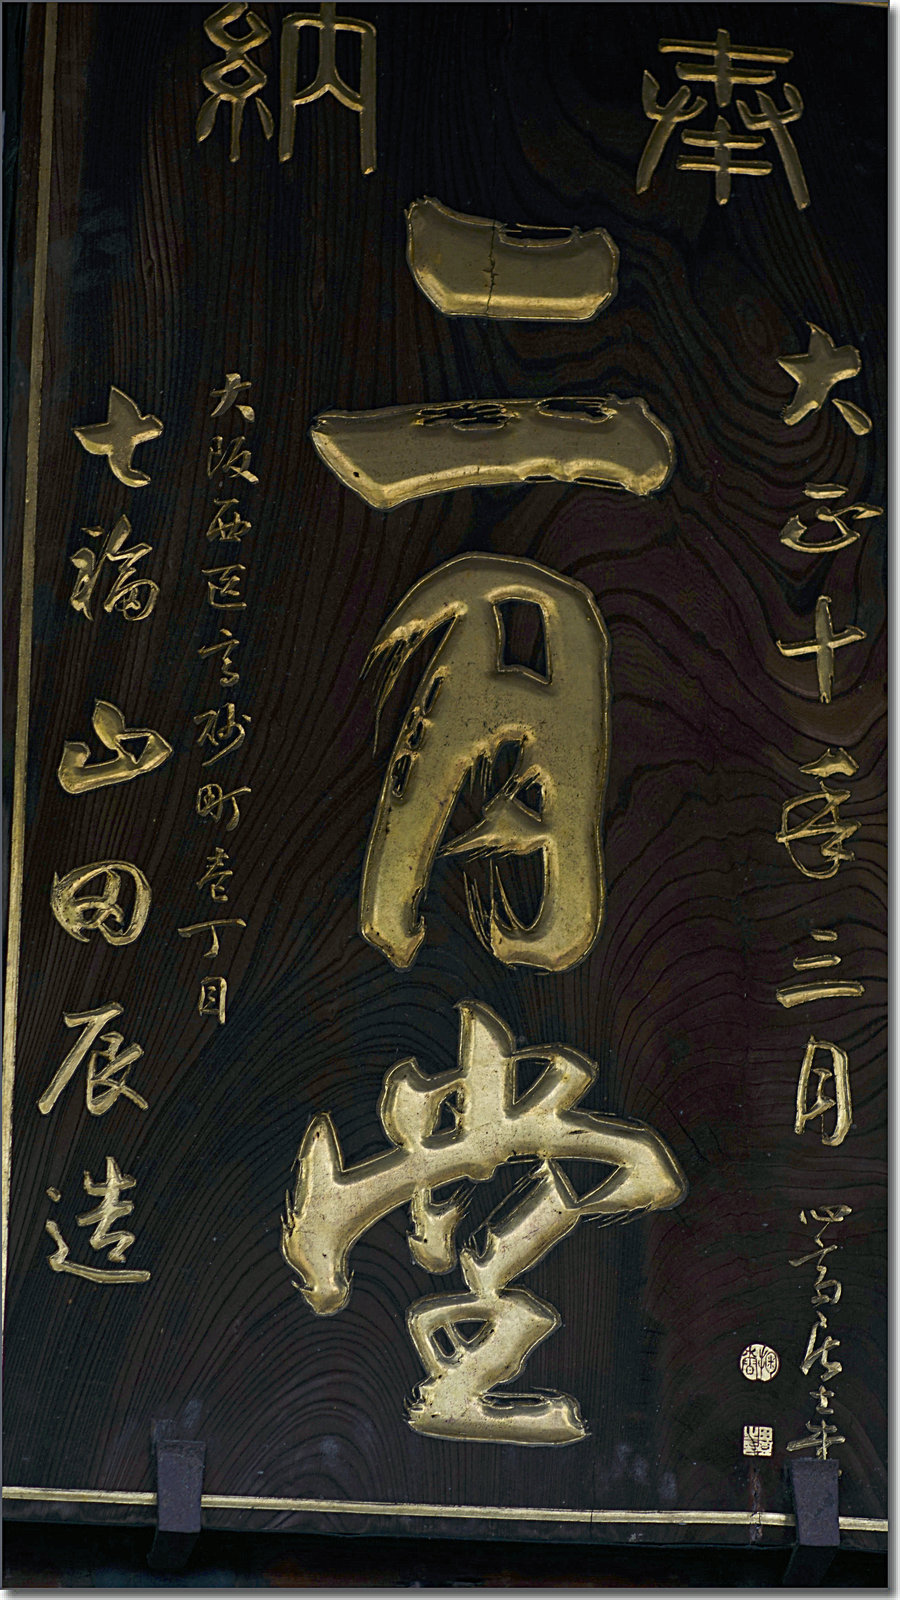 奉納
大正十一年三月
二月堂
大阪西区高砂町壱丁目
七福山田辰造